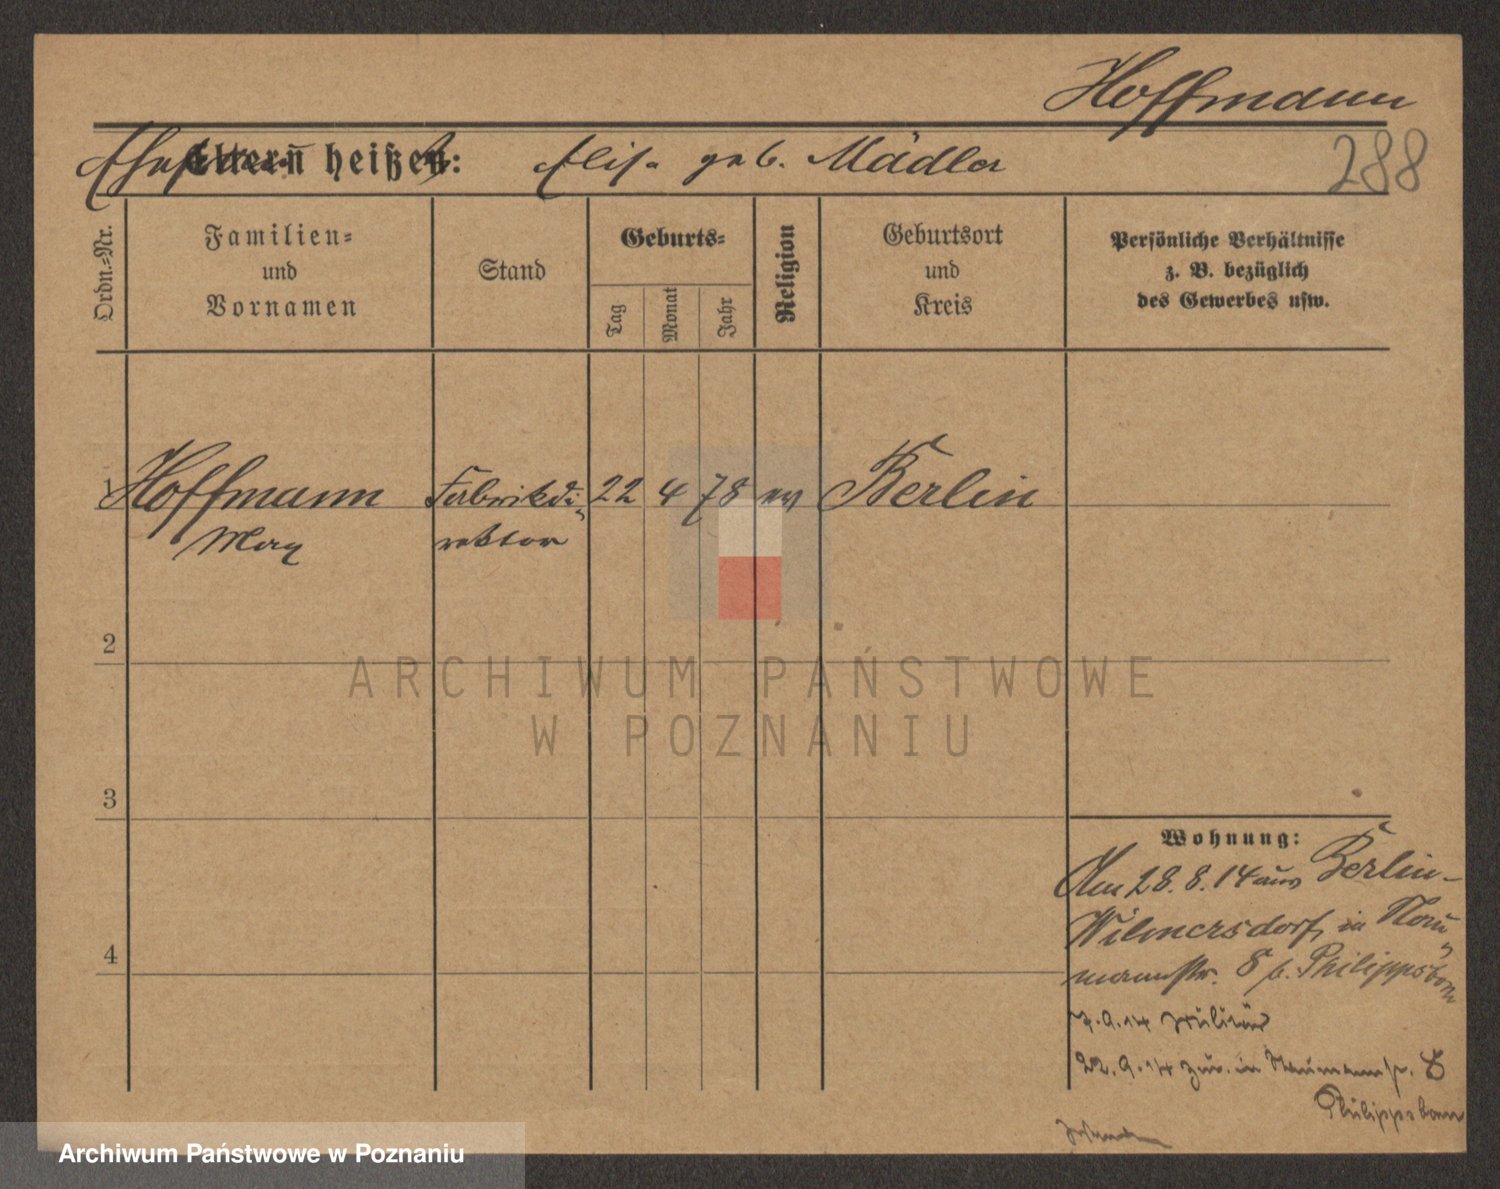 Hoffmann
Eltern heißen: Elise geb. Mädler
288
Ordn.=Nr.
Familien=
und
Vornamen
Stand
Geburts=
Tag
Monat
Jahr
Religion
Geburtsort
und
Kreis
Persönliche Verhältnisse
z. B. bezüglich
des Gewerbes usw.
1 Hoffmann Fabrikdi- 22 4 78 ev Berlin
Max rektor
2
ARCHIWUM PAŃSTWOWE
W POZNANIU
3
Wohnung:
Am 28.8.14 aus Berlin-
Wilmersdorf, in Nau-
mannstr. 8 b. Philippsborn
7.9.14 Militär
22.9.14 zur. in Naumannstr. 8
Philippsborn
4
Archiwum Państwowe w Poznaniu